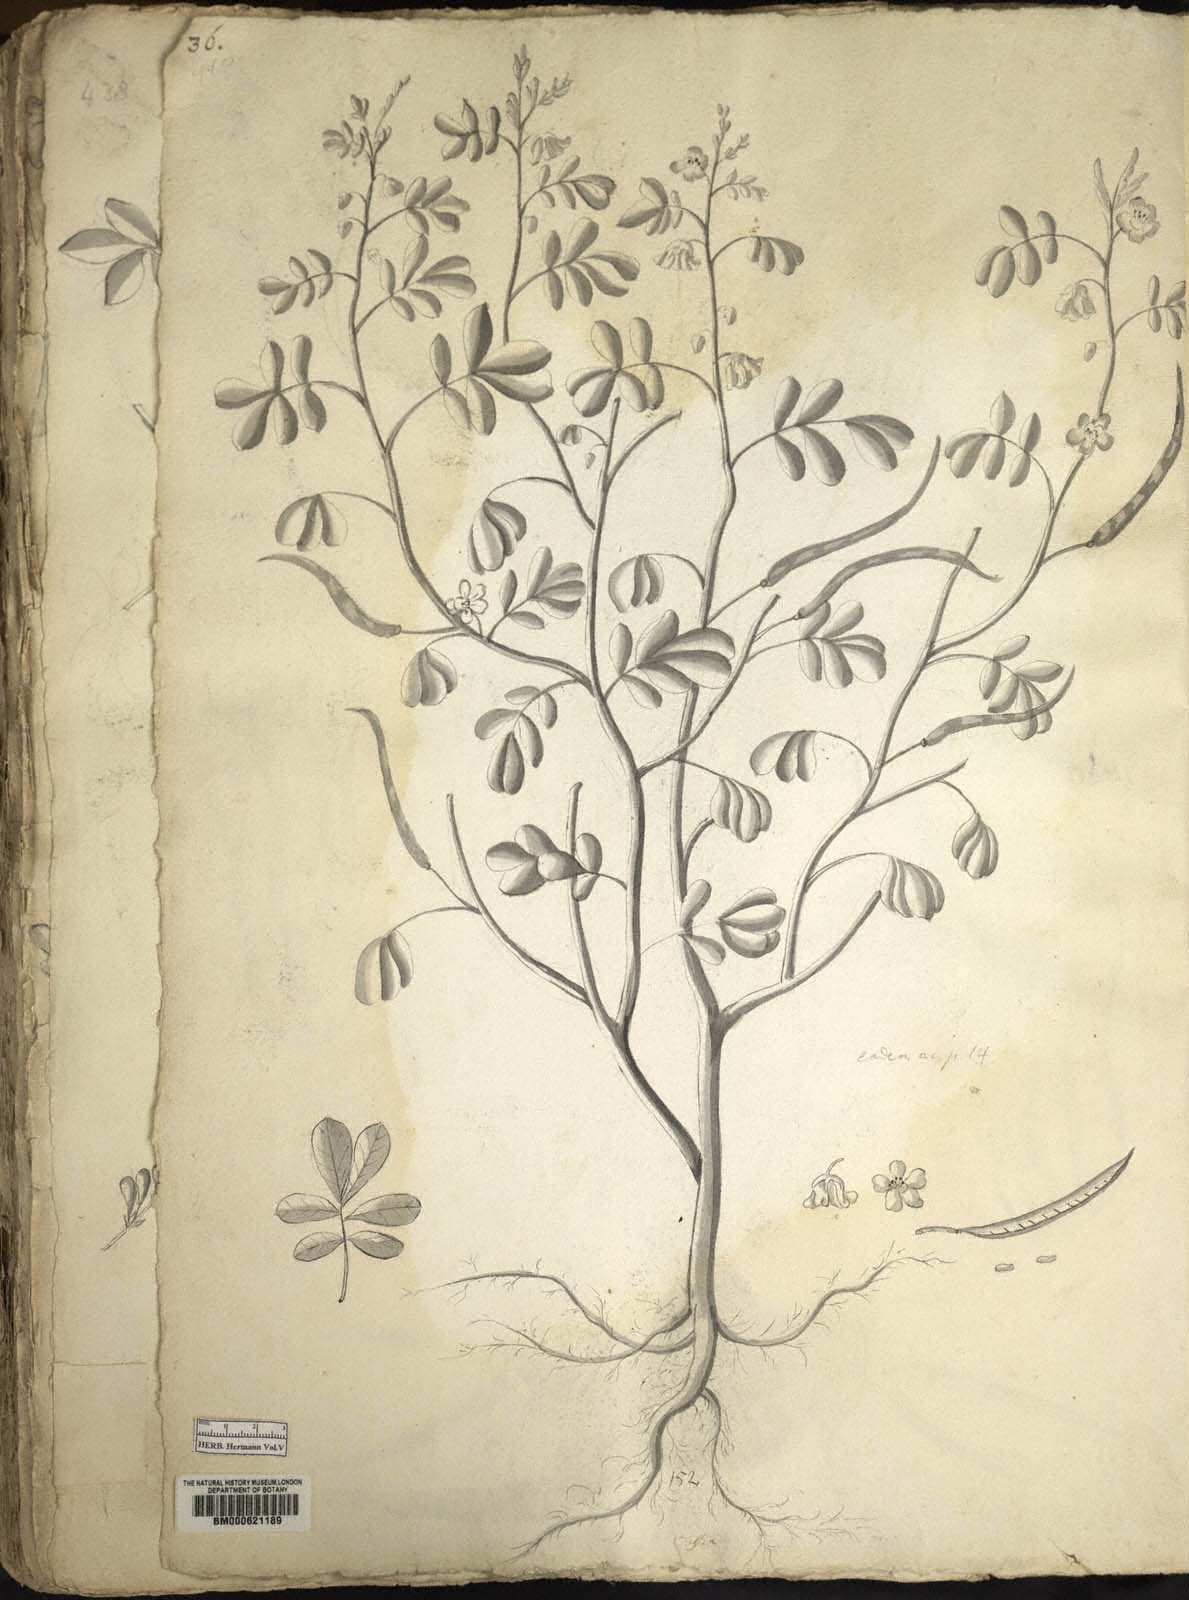 36.
438
eadem ac p. 14
mm
HERB. Hermann Vol.V
THE NATURAL HISTORY MUSEUM, LONDON
DEPARTMENT OF BOTANY
BM000621189
152